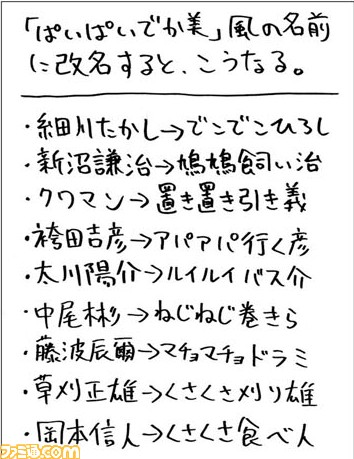 「ぱいぱいでか美」風の名前
に改名すると、こうなる。
・細川たかし→でこでこひろし
・新沼謙治→鳩鳩飼い治
・クワマン→置き置き引き義
・袴田吉彦→アパアパ行く彦
・太川陽介→ルイルイバス介
・中尾彬→ねじねじ巻きら
・藤波辰爾→マチョマチョドラミ
・草刈正雄→くさくさ刈り雄
・岡本信人→くさくさ食べ人
ファミ通.com